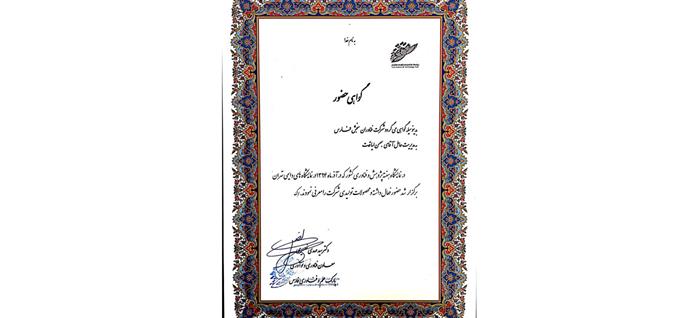 به نام خدا
گواهی حضور
بدینوسیله گواهی می گردد شرکت فناوران سنجش فارس
به مدیریت عامل آقای بهمن لیاقت
در نمایشگاه هفته پژوهش و فناوری کشور که در آذر ماه ۱۳۹۴ در نمایشگاه های دایمی تهران
برگزار شد حضور فعال داشته و محصولات تولیدی شرکت را معرفی نمودند.
دکتر سید مهدی
معاون فناوری و نوآوری
پارک علم و فناوری فارس